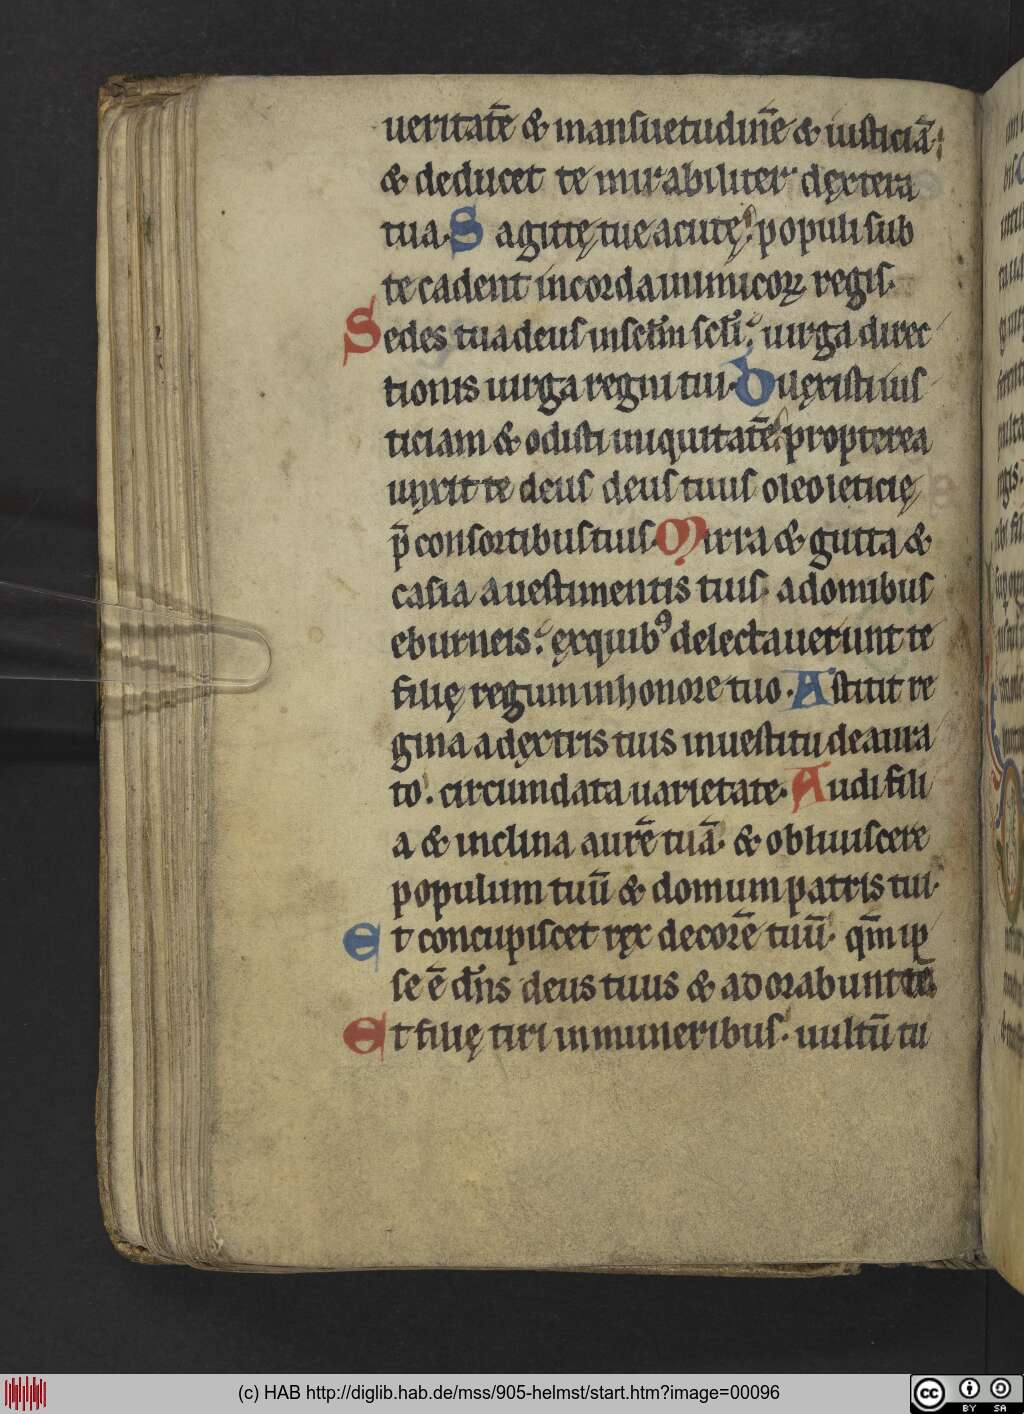 ueritatē & mansuetudinē & iusticiā;
& deducet te mirabiliter dextera
tua. Sagittę tue acutę: populi sub
te cadent in corda inimicoꝝ regis.
Sedes tua deus in sctm scti: uirga direc
tionis uirga regni tui. Dilęxisti ius
ticiam & odisti iniquitatē: propterea
unxit te deus deus tuus oleo leticię
p̄ consortibus tuis. Mirra & gutta &
casia a uestimentis tuis. a domibus
eburneis: ęx quibꝰ delectauerunt te
filię regum in honore tuo. Astitit re
gina a dęxtris tuis in uestitu deaura
to. circumdata uarietate. Audi fili
a & inclina aurē tuā. & obliuiscere
populum tuū & domum patris tui.
Et concupiscet ręx decorē tuū. qm̄ ip
se ē dn̄s deus tuus & adorabunt
Et filię tiri in muneribus. uultū tu
(c) HAB http://diglib.hab.de/mss/905-helmst/start.htm?image=00096
cc
BY SA